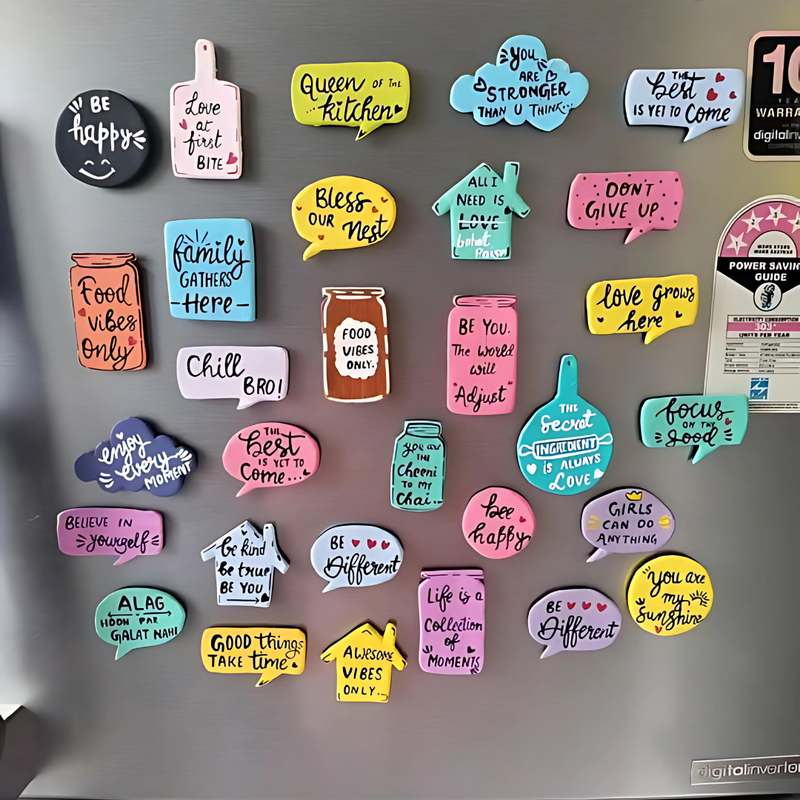 BE
happy
Love
at
first
BITE
Queen OF THE
kitchen
YOU
ARE
STRONGER
THAN U THINK...
THE
best
IS YET TO Come
10
YEAR
digitalinv
Bless
OUR Nest
ALL I
NEED IS
LOVE
DON'T
GIVE UP
family
GATHERS
Here
Food
vibes
Only
FOOD
VIBES
ONLY.
BE YOU.
The World
will
"Adjust"
love grows
here
POWER SAVIN
GUIDE
UNITS PER YEAR
Chill
BRO!
THE
Secret
INGREDIENT
IS ALWAYS
LOVE
focus
ON THE
good
enjoy
every
MOMENT
THE
best
IS YET TO
Come...
you are
THE
Cheeni
TO MY
Chai...
bee
happy
GIRLS
CAN DO
ANYTHING
BELIEVE IN
yourself
be kind
be true
BE YOU
BE
Different
you are
my
Sunshine
ALAG
HOON PAR
GALAT NAHI
GOOD things
TAKE time
AWESOME
VIBES
ONLY...
Life is a
Collection
of
MOMENTS
BE
Different
digitalinverter